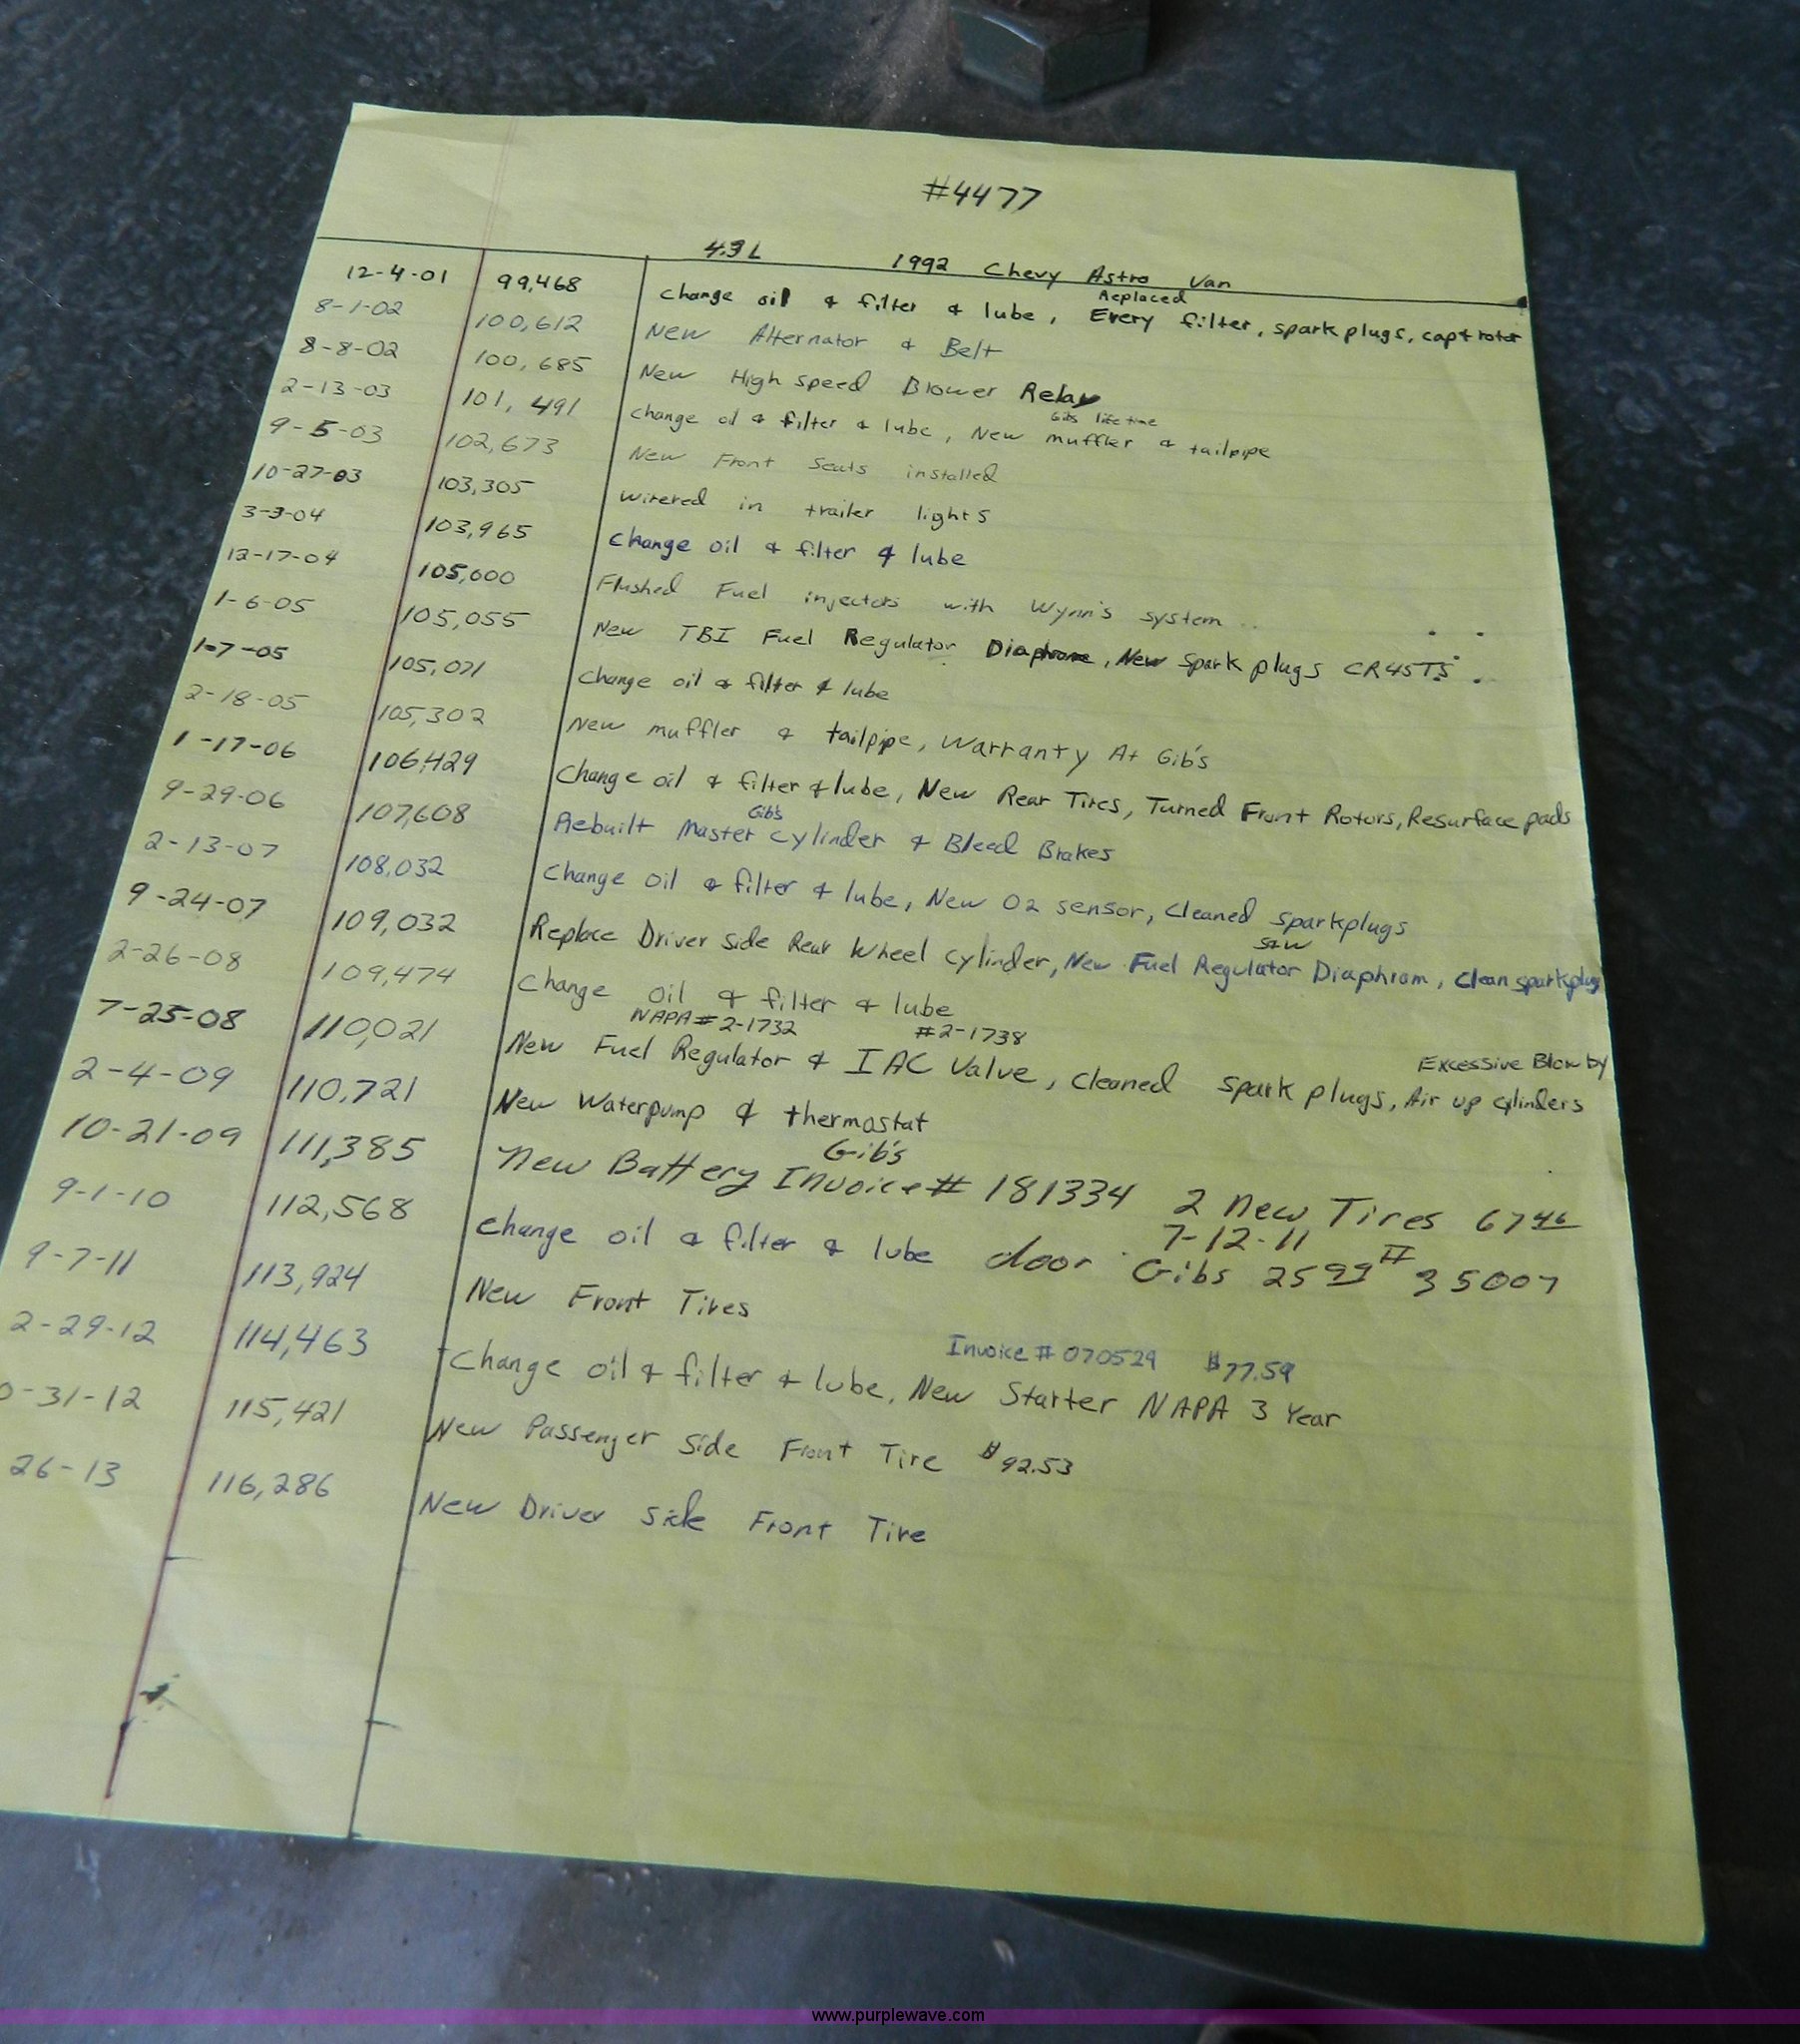 #4477
4.3L 1992 Chevy Astro Van
Replaced
12-4-01 99,468 Change oil & filter & lube, Every filter, spark plugs, cap & rotor
8-1-02 100,612 New Alternator & Belt
8-8-02 100,685 New High speed Blower Relay
Gibs life time
2-13-03 101,491 Change oil & filter & lube, New muffler & tailpipe
9-5-03 102,673 New Front Seats installed
10-27-03 103,305 wirered in trailer lights
3-3-04 103,965 Change oil & filter & lube
12-17-04 105,000 Flushed Fuel injectors with Wynn's system
1-6-05 105,055 New TBI Fuel Regulator Diaphrane, New Spark plugs CR45TS
1-7-05 105,071 Change oil & filter & lube
2-18-05 105,302 New muffler & tailpipe, Warranty At Gib's
1-17-06 106,429 Change oil & filter & lube, New Rear Tires, Turned Front Rotors, Resurface pads
Gibs
9-29-06 107,608 Rebuilt Master cylinder & Bleed Brakes
2-13-07 108,032 Change oil & filter & lube, New O2 sensor, Cleaned sparkplugs
9-24-07 109,032 Replace Driver side Rear Wheel cylinder, New Fuel Regulator Diaphram, Clean sparkplugs
2-26-08 109,474 Change oil & filter & lube
NAPA # 2-1732 #2-1738
Excessive Blow by
7-25-08 110,021 New Fuel Regulator & IAC Valve, Cleaned spark plugs, Air up cylinders
2-4-09 110,721 New Waterpump & thermostat
Gib's
10-21-09 111,385 New Battery Invoice # 181334 2 New Tires 6746
7-12-11
9-1-10 112,568 Change oil & filter & lube door Gibs 2599 # 35007
9-7-11 113,924 New Front Tires
Invoice # 070529 $77.59
2-29-12 114,463 Change oil & filter & lube, New Starter NAPA 3 Year
0-31-12 115,421 New Passenger Side Front Tire $92.53
26-13 116,286 New Driver side Front Tire
www.purplewave.com